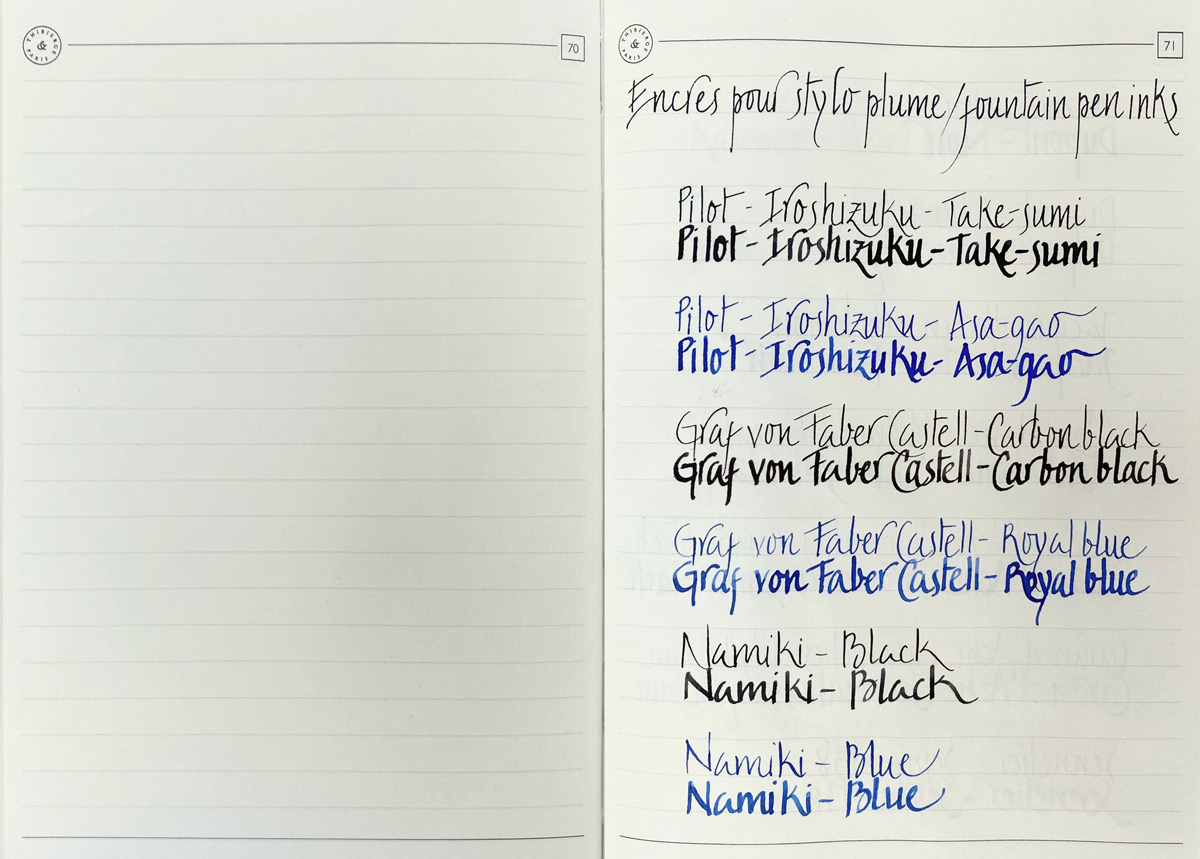 THIBIERGE & PARIS
70
THIBIERGE & PARIS
71
Encres pour stylo plume/fountain pen inks
Pilot - Iroshizuku - Take-sumi
Pilot - Iroshizuku - Take-sumi
Pilot - Iroshizuku - Asa-gao
Pilot - Iroshizuku - Asa-gao
Graf von Faber Castell - Carbon black
Graf von Faber Castell - Carbon black
Graf von Faber Castell - Royal blue
Graf von Faber Castell - Royal blue
Namiki - Black
Namiki - Black
Namiki - Blue
Namiki - Blue